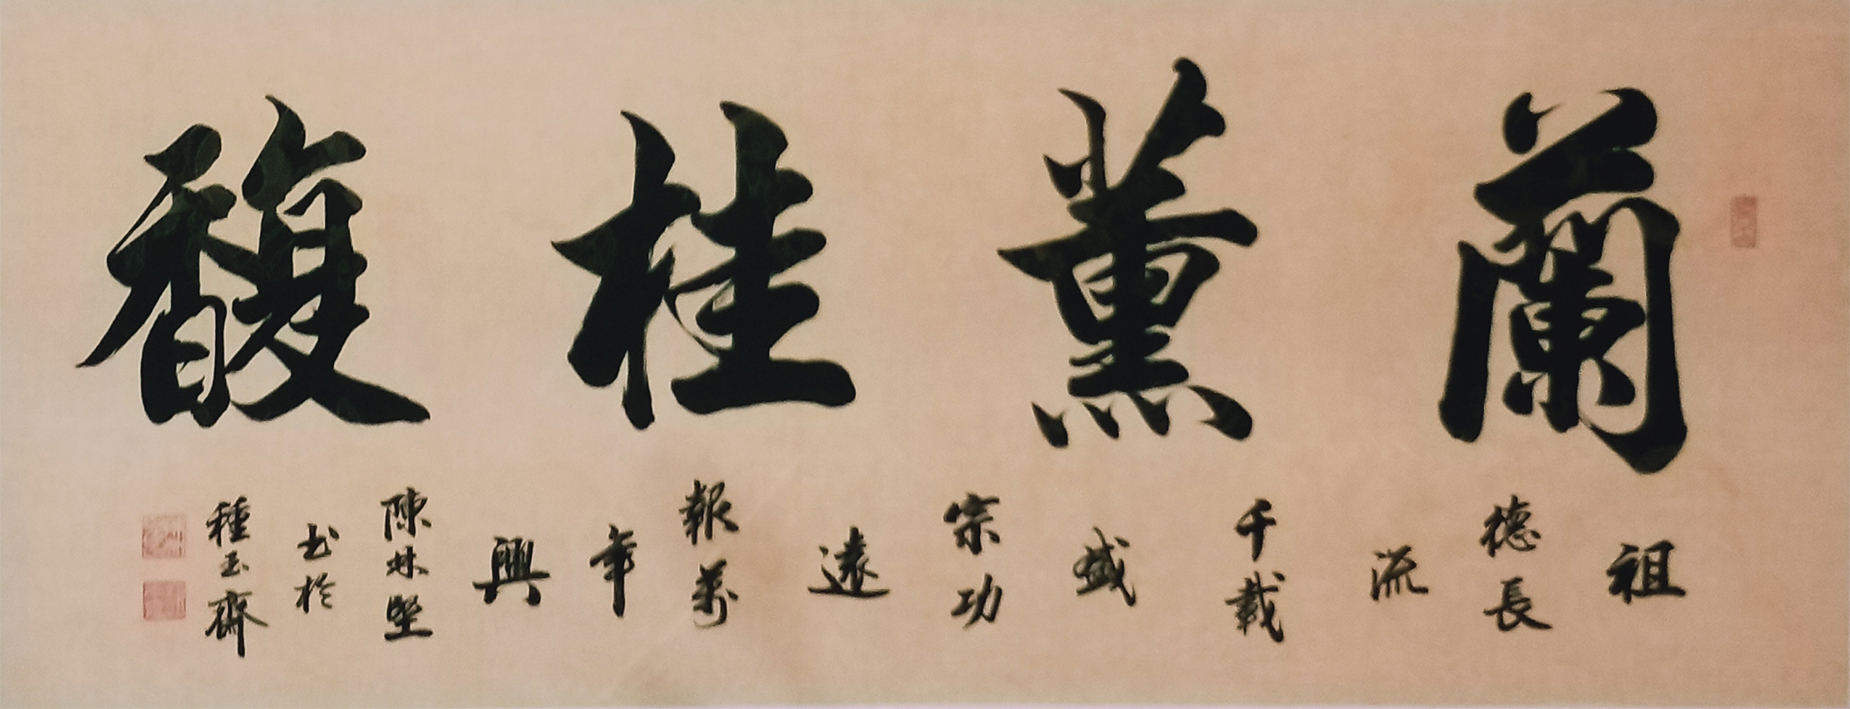 蘭薰桂馥
祖
德長
流
千載
盛
宗功
遠
報萬
年
興
陳林堅
书於
種玉齋